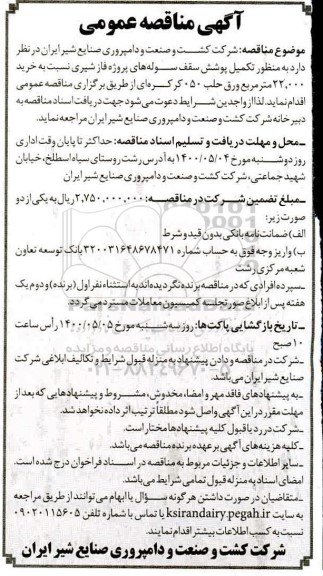 آگهی مناقصه عمومی
موضوع مناقصه: شرکت کشت و صنعت و دامپروری صنایع شیر ایران در نظر
دارد به منظور تکمیل پوشش سقف سوله‌های پروژه فاز شیری نسبت به خرید
۲۲,۰۰۰ مترمربع ورق حلب ۰۵۰ کرکره‌ای از طریق برگزاری مناقصه عمومی
اقدام نماید. لذا از واجدین شرایط دعوت می‌شود جهت دریافت اسناد مناقصه به
دبیرخانه شرکت کشت و صنعت و دامپروری صنایع شیر ایران مراجعه نماید.
ـ محل و مهلت دریافت و تسلیم اسناد مناقصه: حداکثر تا پایان وقت اداری
روز دوشنبه مورخ ۱۴۰۰/۰۵/۰۴ به آدرس رشت روستای سیاه اسطلخ، خیابان
شهید جماعتی، شرکت کشت و صنعت و دامپروری صنایع شیر ایران
ـ مبلغ تضمین شرکت در مناقصه: ۲,۷۵۰,۰۰۰,۰۰۰ ریال به یکی از دو
صورت زیر:
الف) ضمانت‌نامه بانکی بدون قید و شرط
ب) واریز وجه فوق به حساب شماره ۳۲۰۰۳۱۶۴۸۶۷۸۴۷۱ بانک توسعه تعاون
شعبه مرکزی رشت
ـ سپرده افرادی که در مناقصه برنده نگردیده‌اند به استثناء نفر اول (برنده) و دوم یک
هفته پس از ابلاغ صورتجلسه کمیسیون معاملات مسترد می‌گردد.
ـ تاریخ بازگشایی پاکت‌ها: روز سه‌شنبه مورخ ۱۴۰۰/۰۵/۰۵ رأس ساعت
۱۰ صبح
ـ شرکت در مناقصه و دادن پیشنهاد به منزله قبول شرایط و تکالیف ابلاغی شرکت
صنایع شیر ایران می‌باشد.
ـ به پیشنهادهای فاقد مهر و امضاء، مخدوش، مشروط و پیشنهادهایی که بعد از
مهلت مقرر در این آگهی واصل شود مطلقا ترتیب اثر داده نخواهد شد.
ـ شرکت در رد یا قبول کلیه پیشنهادها مختار است.
ـ کلیه هزینه‌های آگهی بر عهده برنده مناقصه می‌باشد.
ـ سایر اطلاعات و جزئیات مربوط به مناقصه در اسناد فراخوان درج شده است.
امضای اسناد به منزله قبول تمامی شرایط می‌باشد.
ـ متقاضیان در صورت داشتن هرگونه سؤال یا ابهام می‌توانند از طریق مراجعه
به سایت ksirandairy.pegah.ir یا تماس با شماره تلفن ۰۹۰۲۰۱۱۵۶۰۵
نسبت به کسب اطلاعات بیشتر اقدام نمایند.
شرکت کشت و صنعت و دامپروری صنایع شیر ایران